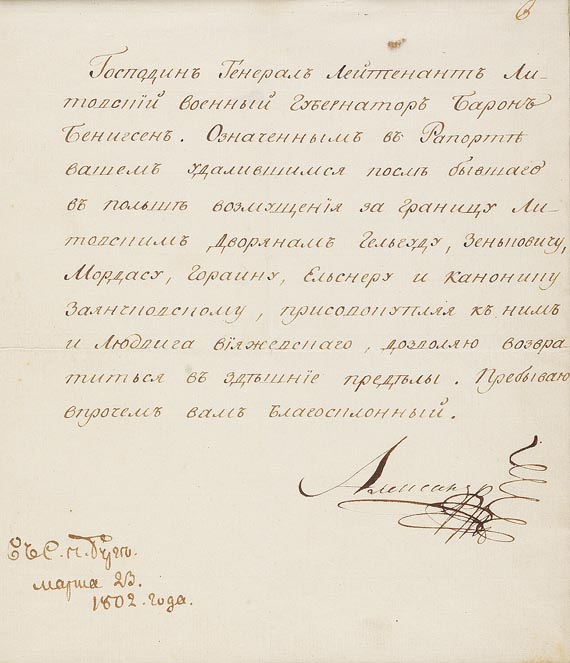 6
Господинъ Генералъ Лейтенантъ Ли-
товскій военный Губернаторъ Баронъ
Бенигсенъ. Означеннымъ въ Рапортѣ
вашемъ удалившимся послѣ бывшаго
въ польшѣ возмущенія за границу Ли-
товскимъ Дворянамъ Гельгуду, Зеньковичу,
Мордасу, Гораину, Ельснеру и канонику
Заянчковскому, присовокупляя къ нимъ
и Людвига віяжевскаго, дозволяю возвра-
титься въ здѣшніе предѣлы. Пребываю
впрочемъ вамъ благосклонный.
Александръ
марта 23.
1802. года.